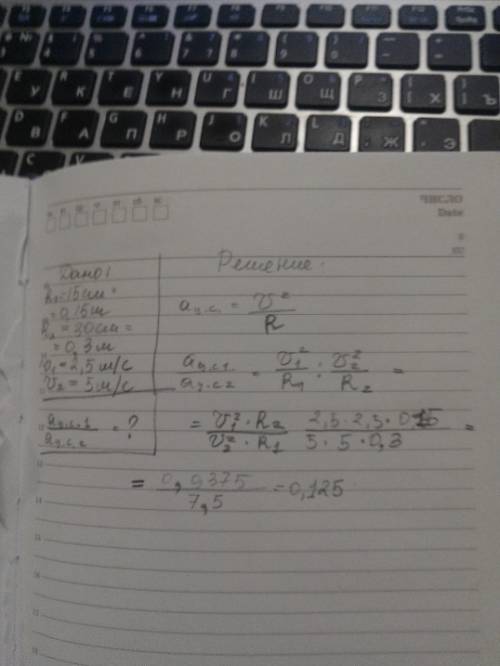 Е У К Е Н Г Ш Щ З Х Ъ
В А П Р О Л Д Ж Э
ЧИСЛО
Date
Дано:
R₁=15см=
=0,15м
R₂=30см=
=0,3м
v₁=2,5м/с
v₂=5м/с
aц.с.1/aц.с.2=?
Решение.
aц.с.=v²/R
aц.с1/aц.с2=v₁²/R₁:v₂²/R₂=
=v₁²·R₂/v₂²·R₁ 2,5·2,5·0,15/5·5·0,3=
=0,9375/7,5=0,125